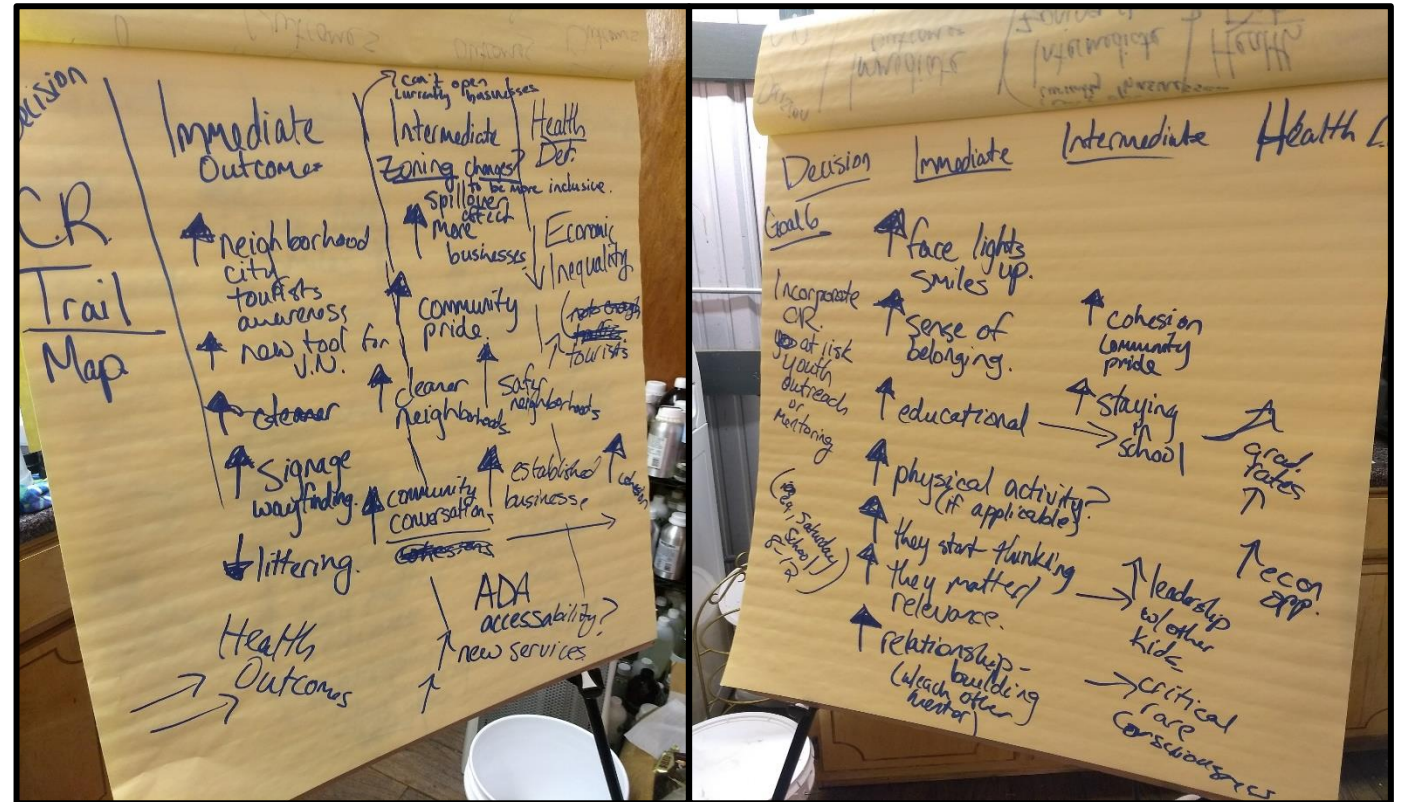 Decision
C.R.
Trail
Map
Immediate
Outcomes
neighborhood
city
tourists
awareness
new tool for
J.N.
cleaner
Signage
wayfinding.
littering.
Health
Outcomes
can't open
currently businesses
Intermediate
Zoning changes?
to be more inclusive.
spillover
effect
more
businesses
community
pride
cleaner
neighborhoods
safer
neighborhoods
community
conversations
established
businesses
cohesion
ADA
accessability?
new services
Health
Det.
Economic
Inequality
tourists
Decision
Goal 6
Incorporate
C.R.
at risk
youth
outreach
or
Mentoring
eg, Saturday
School
8-12
Immediate
face lights
up.
smiles
sense of
belonging.
educational
physical activity?
(if applicable)
they start thinking
they matter/
relevance.
relationship-
building
(w/each other
mentor)
Intermediate
cohesion
community
pride
staying
in
school
leadership
w/other
kids
critical
race
consciousness
Health
grad.
rates
econ
opp.